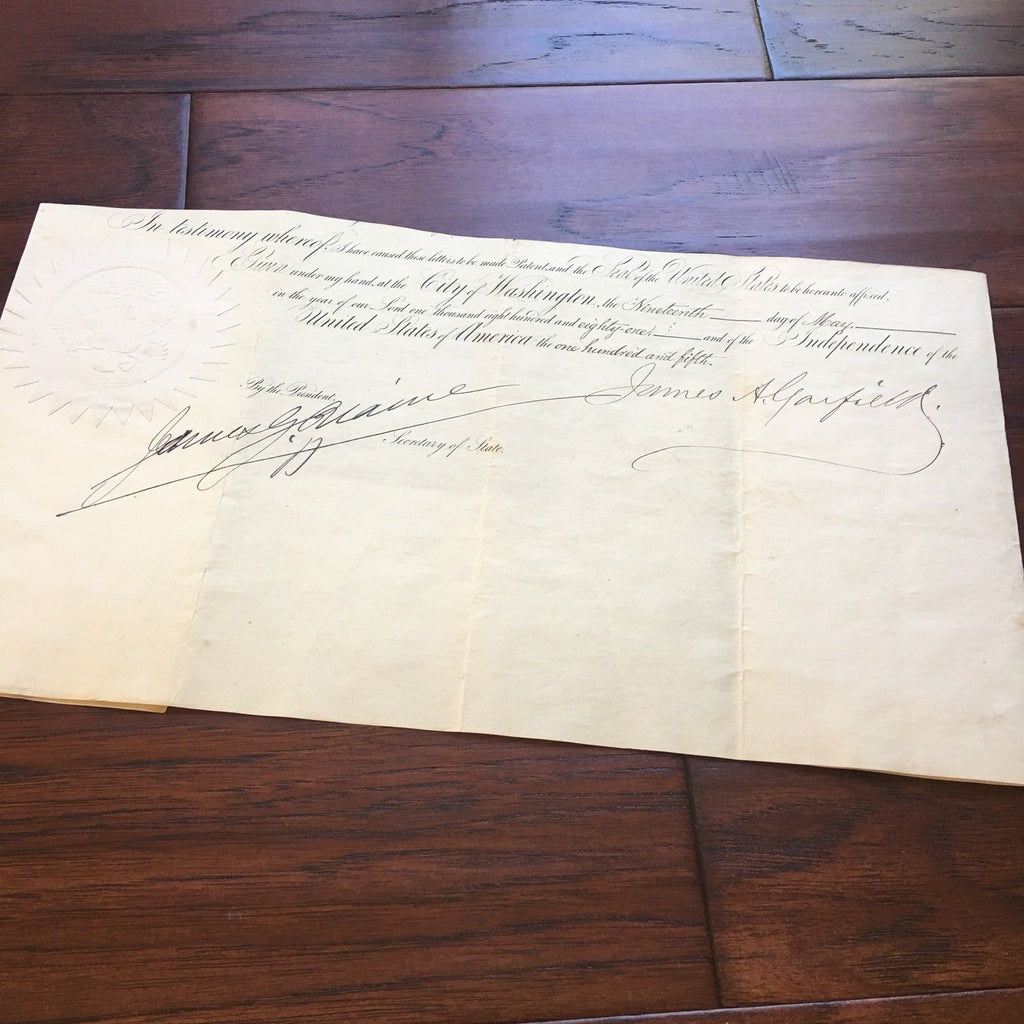 In testimony whereof, I have caused these letters to be made Patent, and the Seal of the United States to be hereunto affixed.
Given under my hand, at the City of Washington, the Nineteenth day of May,
in the year of our Lord one thousand eight hundred and eighty-one; and of the Independence of the
United States of America the one hundred and fifth.
James A. Garfield.
By the President,
James G. Blaine
Secretary of State.